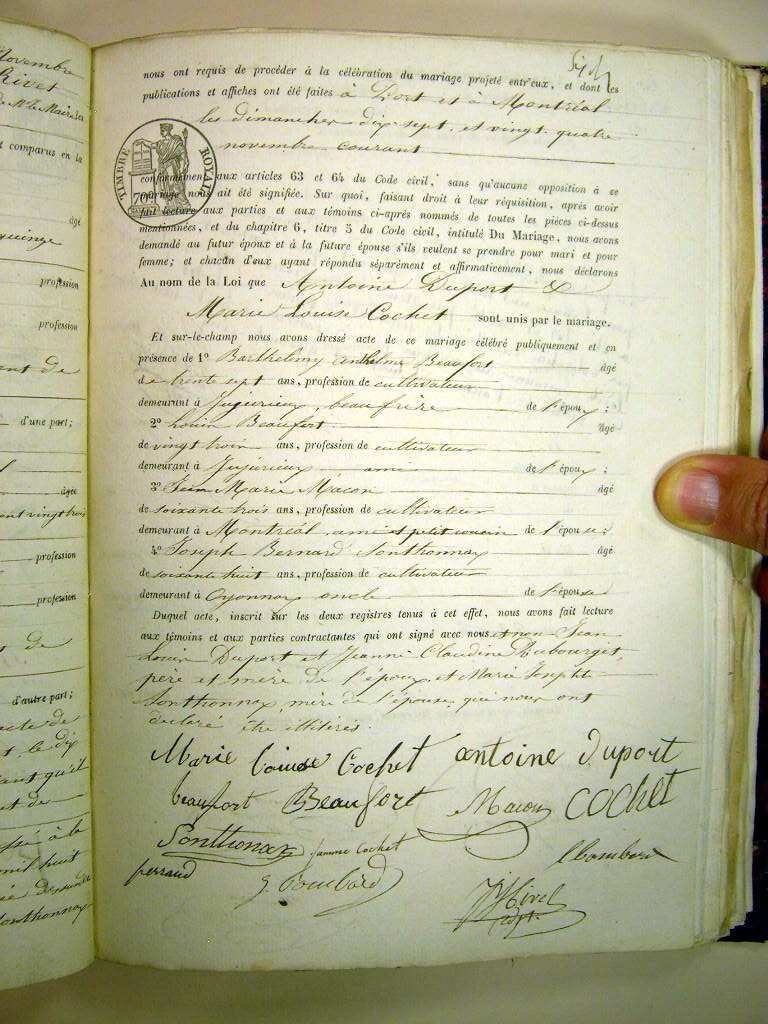 novembre
Rivet
de Mr le Maire
t comparus en la
âgé
quinze
profession
profession
ent de
d'une part;
âgé
ont vingt trois
profession
profession
de
d'autre part;
acte de
t le dix
qu'il
et de
à la
mil huit
Sonthonnax
nous ont requis de procéder à la célébration du mariage projeté entr'eux, et dont les
publications et affiches ont été faites à Dort et à Montréal
les dimanches dix sept et vingt quatre
novembre courant
TIMBRE ROYAL
70
conformément aux articles 63 et 64 du Code civil, sans qu'aucune opposition à ce
mariage nous ait été signifiée. Sur quoi, faisant droit à leur réquisition, après avoir
fait lecture aux parties et aux témoins ci-après nommés de toutes les pièces ci-dessus
mentionnées, et du chapitre 6, titre 5 du Code civil, intitulé Du Mariage, nous avons
demandé au futur époux et à la future épouse s'ils veulent se prendre pour mari et pour
femme; et chacun d'eux ayant répondu séparément et affirmativement, nous déclarons
Au nom de la Loi que Antoine Duport &
Marie Louise Cochet sont unis par le mariage.
Et sur-le-champ nous avons dressé acte de ce mariage célébré publiquement et en
présence de 1º Barthélemy anthelme Beaufort âgé
de trente sept ans, profession de cultivateur
demeurant à Jujurieux, beau frère de l'époux;
2º Louis Beaufort âgé
de vingt trois ans, profession de cultivateur
demeurant à Jujurieux ami de l'époux;
3º Jean Marie Macon âgé
de soixante trois ans, profession de cultivateur
demeurant à Montréal ami et petit cousin de l'épouse;
4º Joseph Bernard Sonthonnax âgé
de soixante huit ans, profession de cultivateur
demeurant à Oyonnax oncle de l'épouse
Duquel acte, inscrit sur les deux registres tenus à cet effet, nous avons fait lecture
aux témoins et aux parties contractantes qui ont signé avec nous et non Jean
Louis Duport et Jeanne Claudine Rubourget,
père et mère de l'époux, et Marie Josephte
Sonthonnax, mère de l'épouse, qui nous ont
déclaré être illitérés.
Marie Louise Cochet antoine duport
beaufort Beaufort Macon COCHET
Sonthonax femme Cochet
perraud